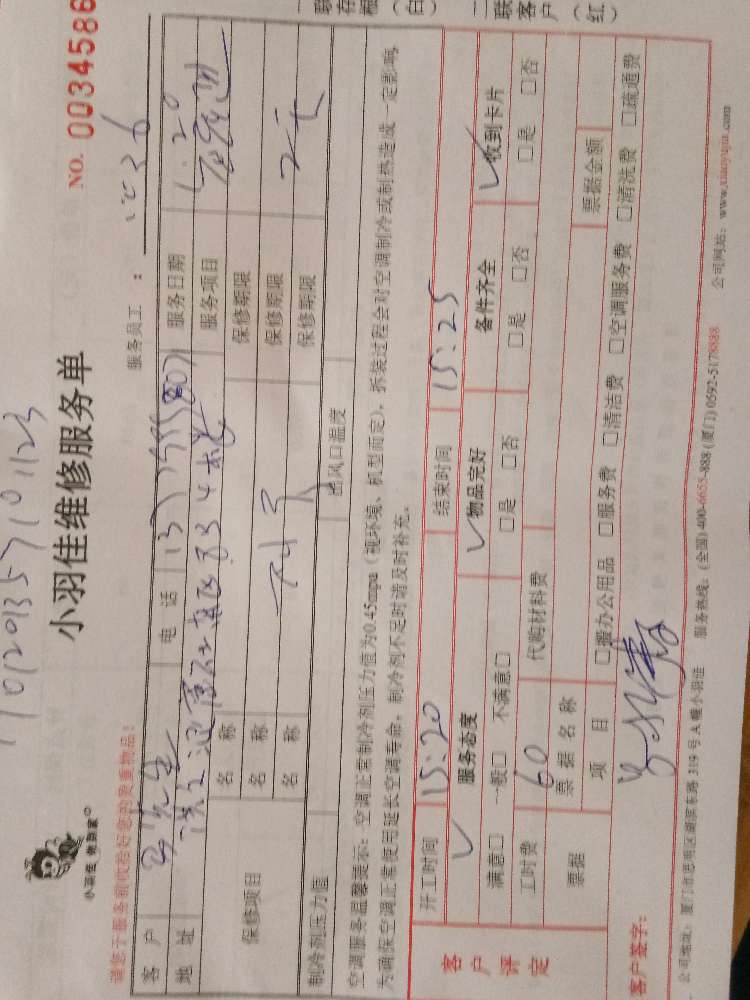 小羽佳维修服务单
NO. 0034586
小羽佳 修到家
请您于服务前收拾好您的贵重物品！
服务员工：
客户 电话 服务日期 1.20
地址 服务项目
保修项目
名称 保修期限
名称 保修期限
名称 保修期限
制冷剂压力值 出风口温度
空调服务温馨提示：空调正常制冷剂压力值为0.45mpa（视环境、机型而定），拆装过程会对空调制冷或制热造成一定影响，
为确保空调正常使用延长空调寿命，制冷剂不足时请及时补充。
开工时间 15:20 结束时间 15:25
客户评定
服务态度 物品完好 备件齐全 收到卡片
满意□ 一般□ 不满意□ □是 □否 □是 □否 □是 □否
工时费 60 代购材料费
票据 票据名称 票据金额
项目 □报办公用品 □服务费 □清洁费 □空调服务费 □清洗费 □疏通费
客户签字：
公司地址：厦门市思明区湖滨东路319号A幢小羽佳 服务热线：(全国) 400-6655-888 (厦门) 0592-5178888 公司网站：www.xiaoyujia.com
联存根（白）
二联客户（红）